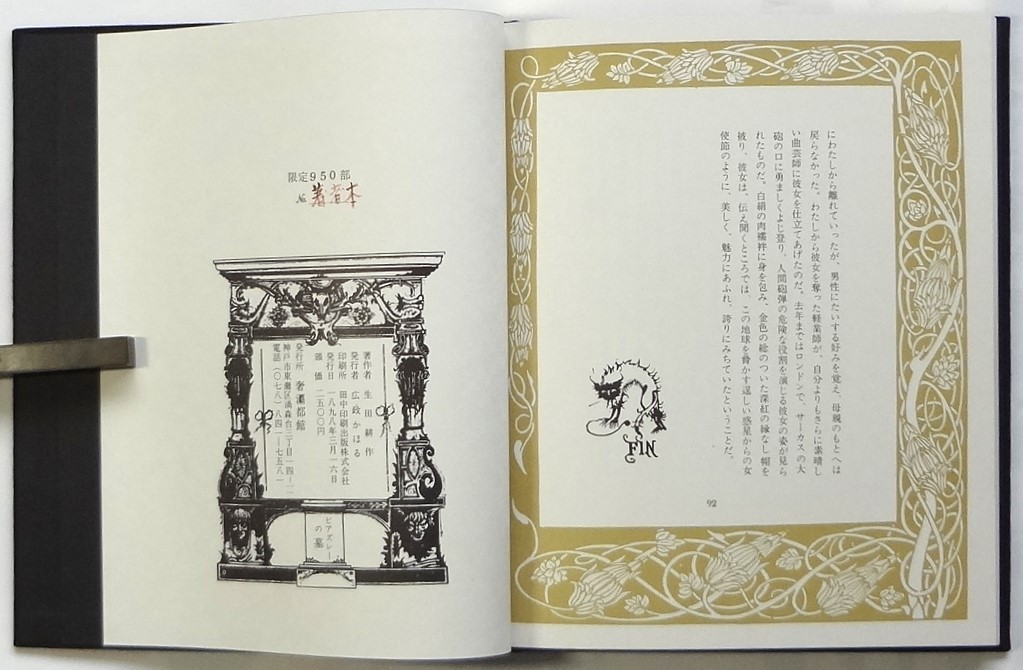 にわたしから離れていったが、男性にたいする好みを覚え、母親のもとへは
戻らなかった。わたしから彼女を奪った軽業師が、自分よりもさらに素晴し
い曲芸師に彼女を仕立てあげたのだ。去年まではロンドンで、サーカスの大
砲の口に勇ましくよじ登り、人間砲弾の危険な役割を演じる彼女の姿が見ら
れたものだ。白絹の肉襦袢に身を包み、金色の総のついた深紅の縁なし帽を
被り、彼女は、伝え聞くところでは、この地球を脅かす逞しい惑星からの女
使節のように、美しく、魅力にあふれ、誇りにみちていたということだ。
FIN
92
限定950部
№ 著者本
著作者 生田耕作
発行者 広政かほる
印刷所 田中印刷出版株式会社
発行日 一八九八年三月一六日
頒価 二五〇〇円
発行所 奢灞都館
神戸市東灘区渦森台三丁目一四-一
電話(〇七八)八四一-七五八一
ビアズレー
の墓